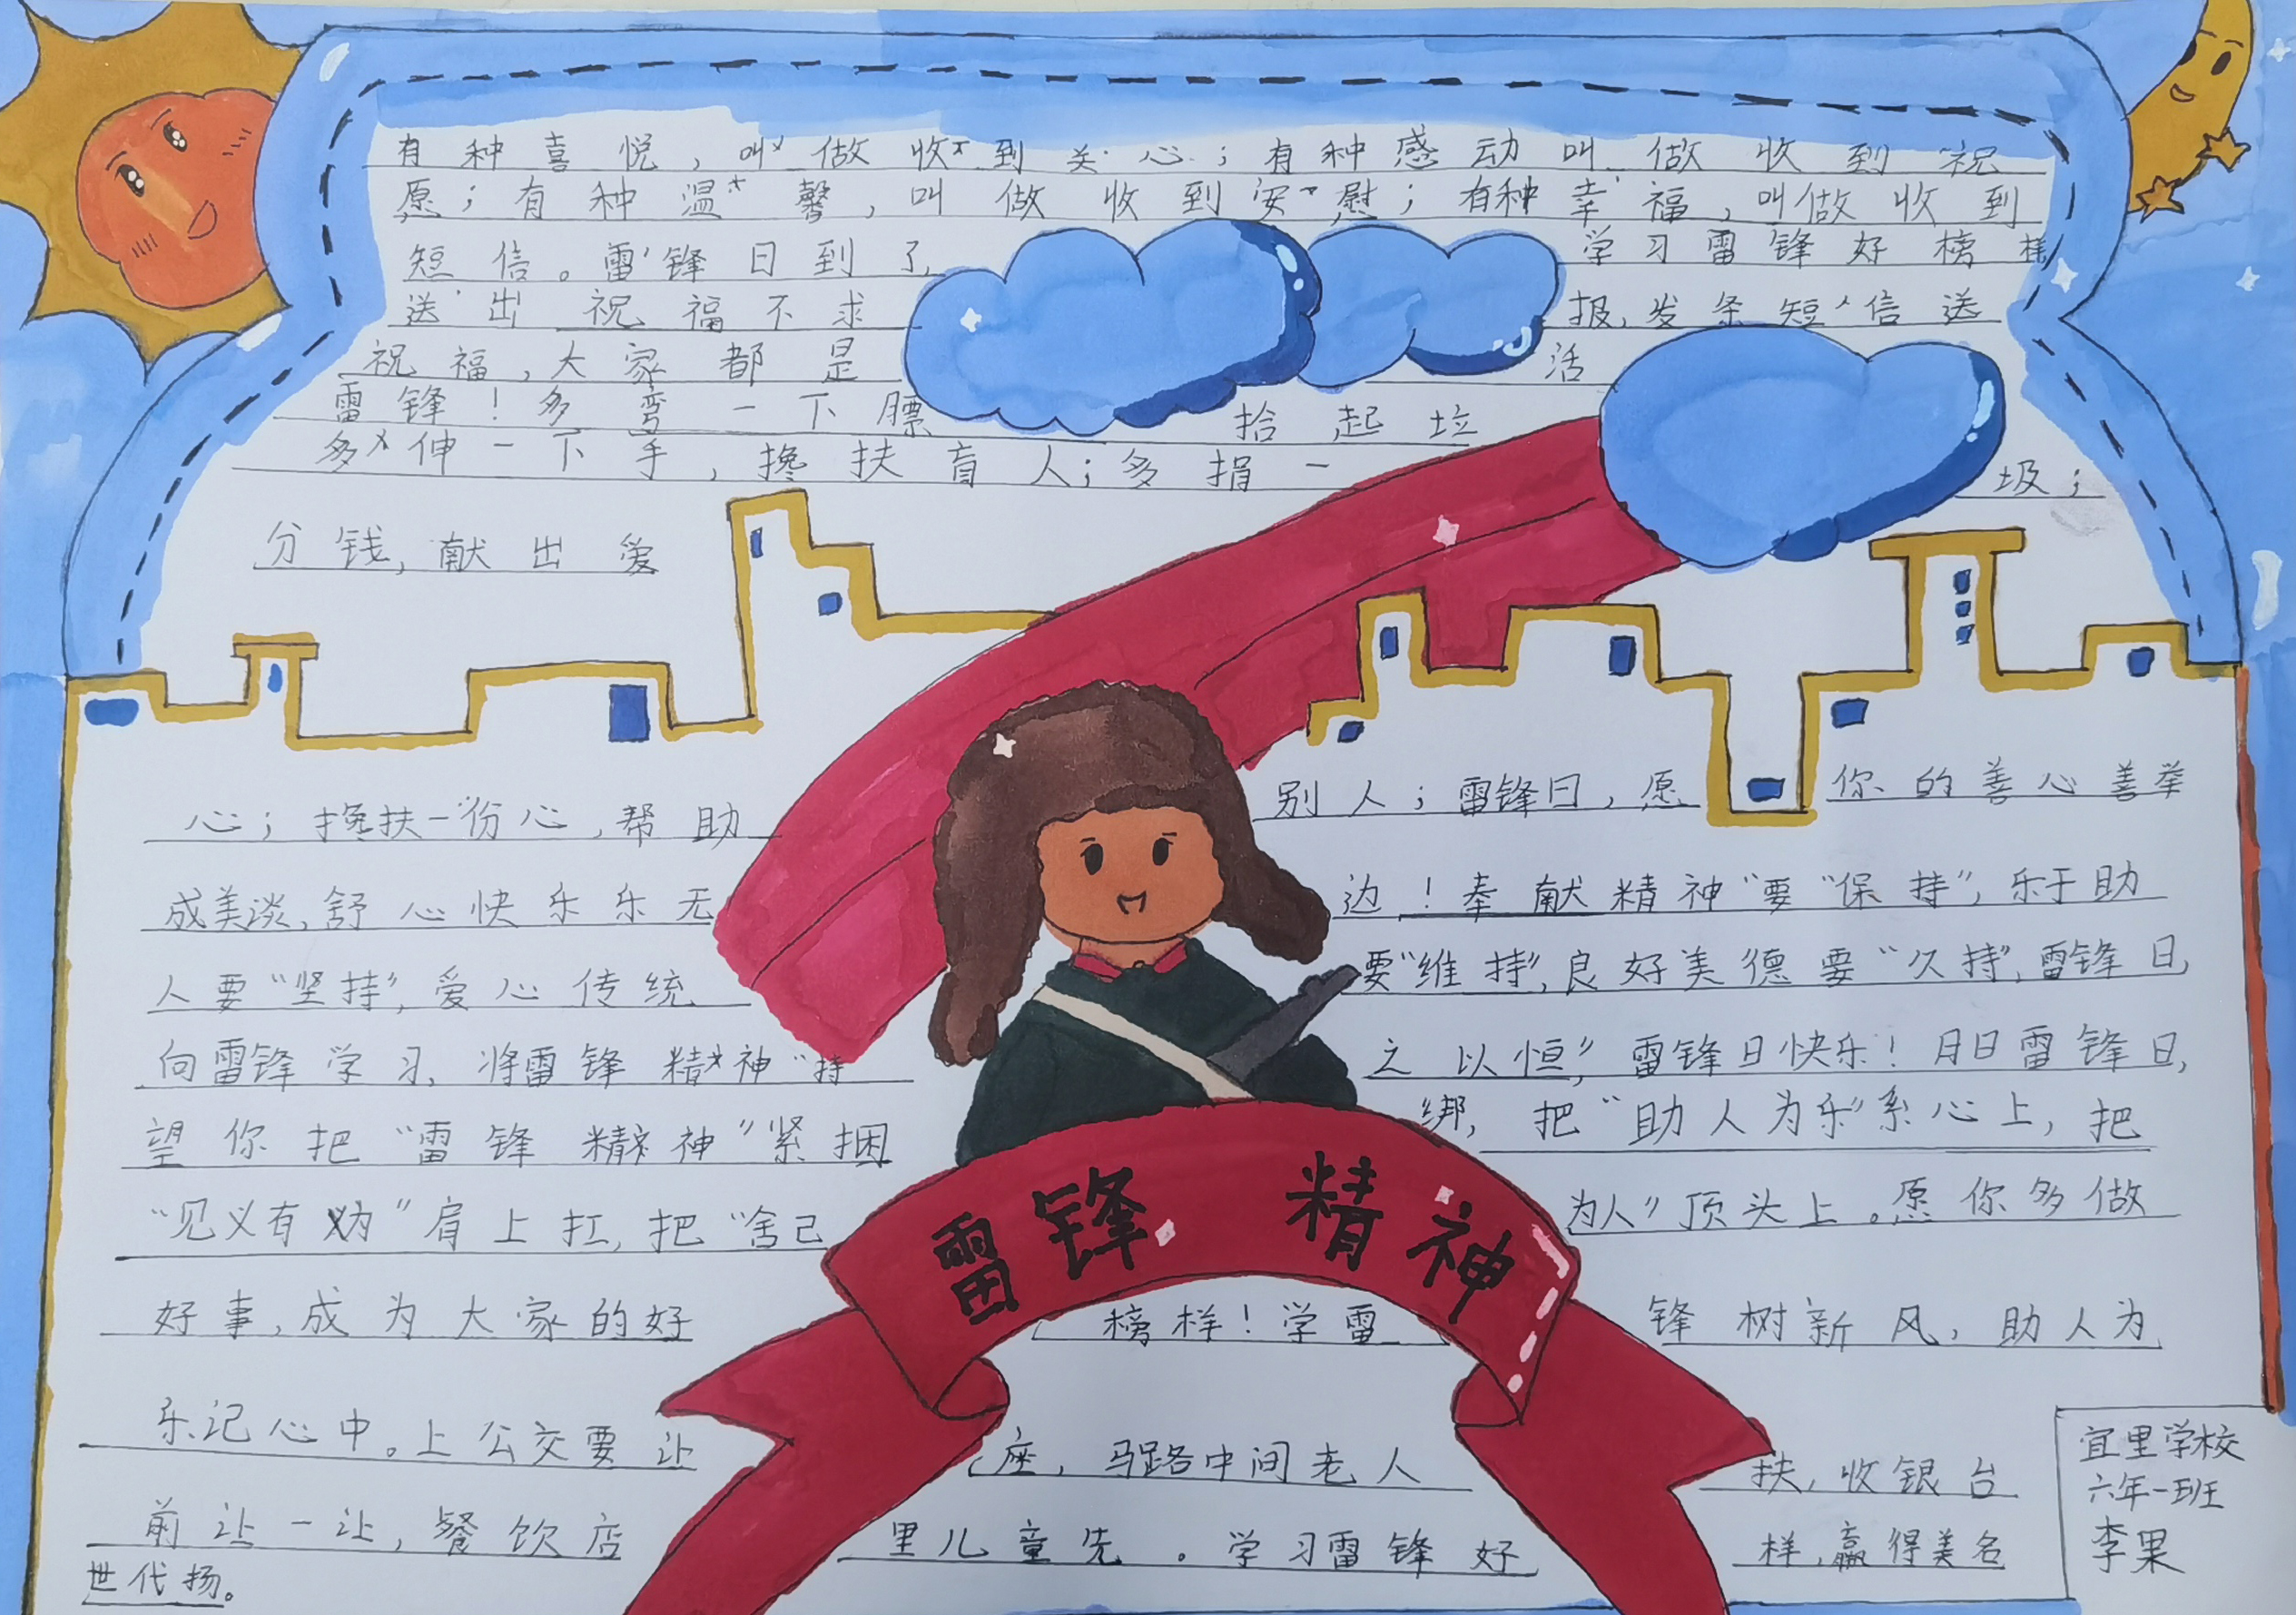 有种喜悦，叫做收到关心；有种感动叫做收到祝
愿；有种温馨，叫做收到安慰；有种幸福，叫做收到
短信。雷锋日到了 学习雷锋好榜样
送出祝福不求 报，发条短信送
祝福，大家都是 活
雷锋！多弯一下腰 拾起垃
圾；
多伸一下手，搀扶盲人；多捐一
分钱，献出爱
心；搀扶一份心，帮助 别人；雷锋日，愿 你的善心善举
成美谈，舒心快乐乐无 边！奉献精神“要“保持”，乐于助
人要“坚持”，爱心传统 要“维持”，良好美德要“久持”，雷锋日
向雷锋学习，将雷锋精神“持 之以恒”，雷锋日快乐！月日雷锋日，
望你把“雷锋精神”紧捆 绑，把“助人为乐”系心上，把
“见义有为”肩上扛，把“舍己 为人”顶头上。愿你多做
好事，成为大家的好 榜样！学雷 锋树新风，助人为
乐记心中。上公交要让 座，马路中间老人 扶，收银台
前让一让，餐饮店 里儿童先。学习雷锋好 样，赢得美名
世代扬。
雷锋 精神
宜里学校
六年一班
李果